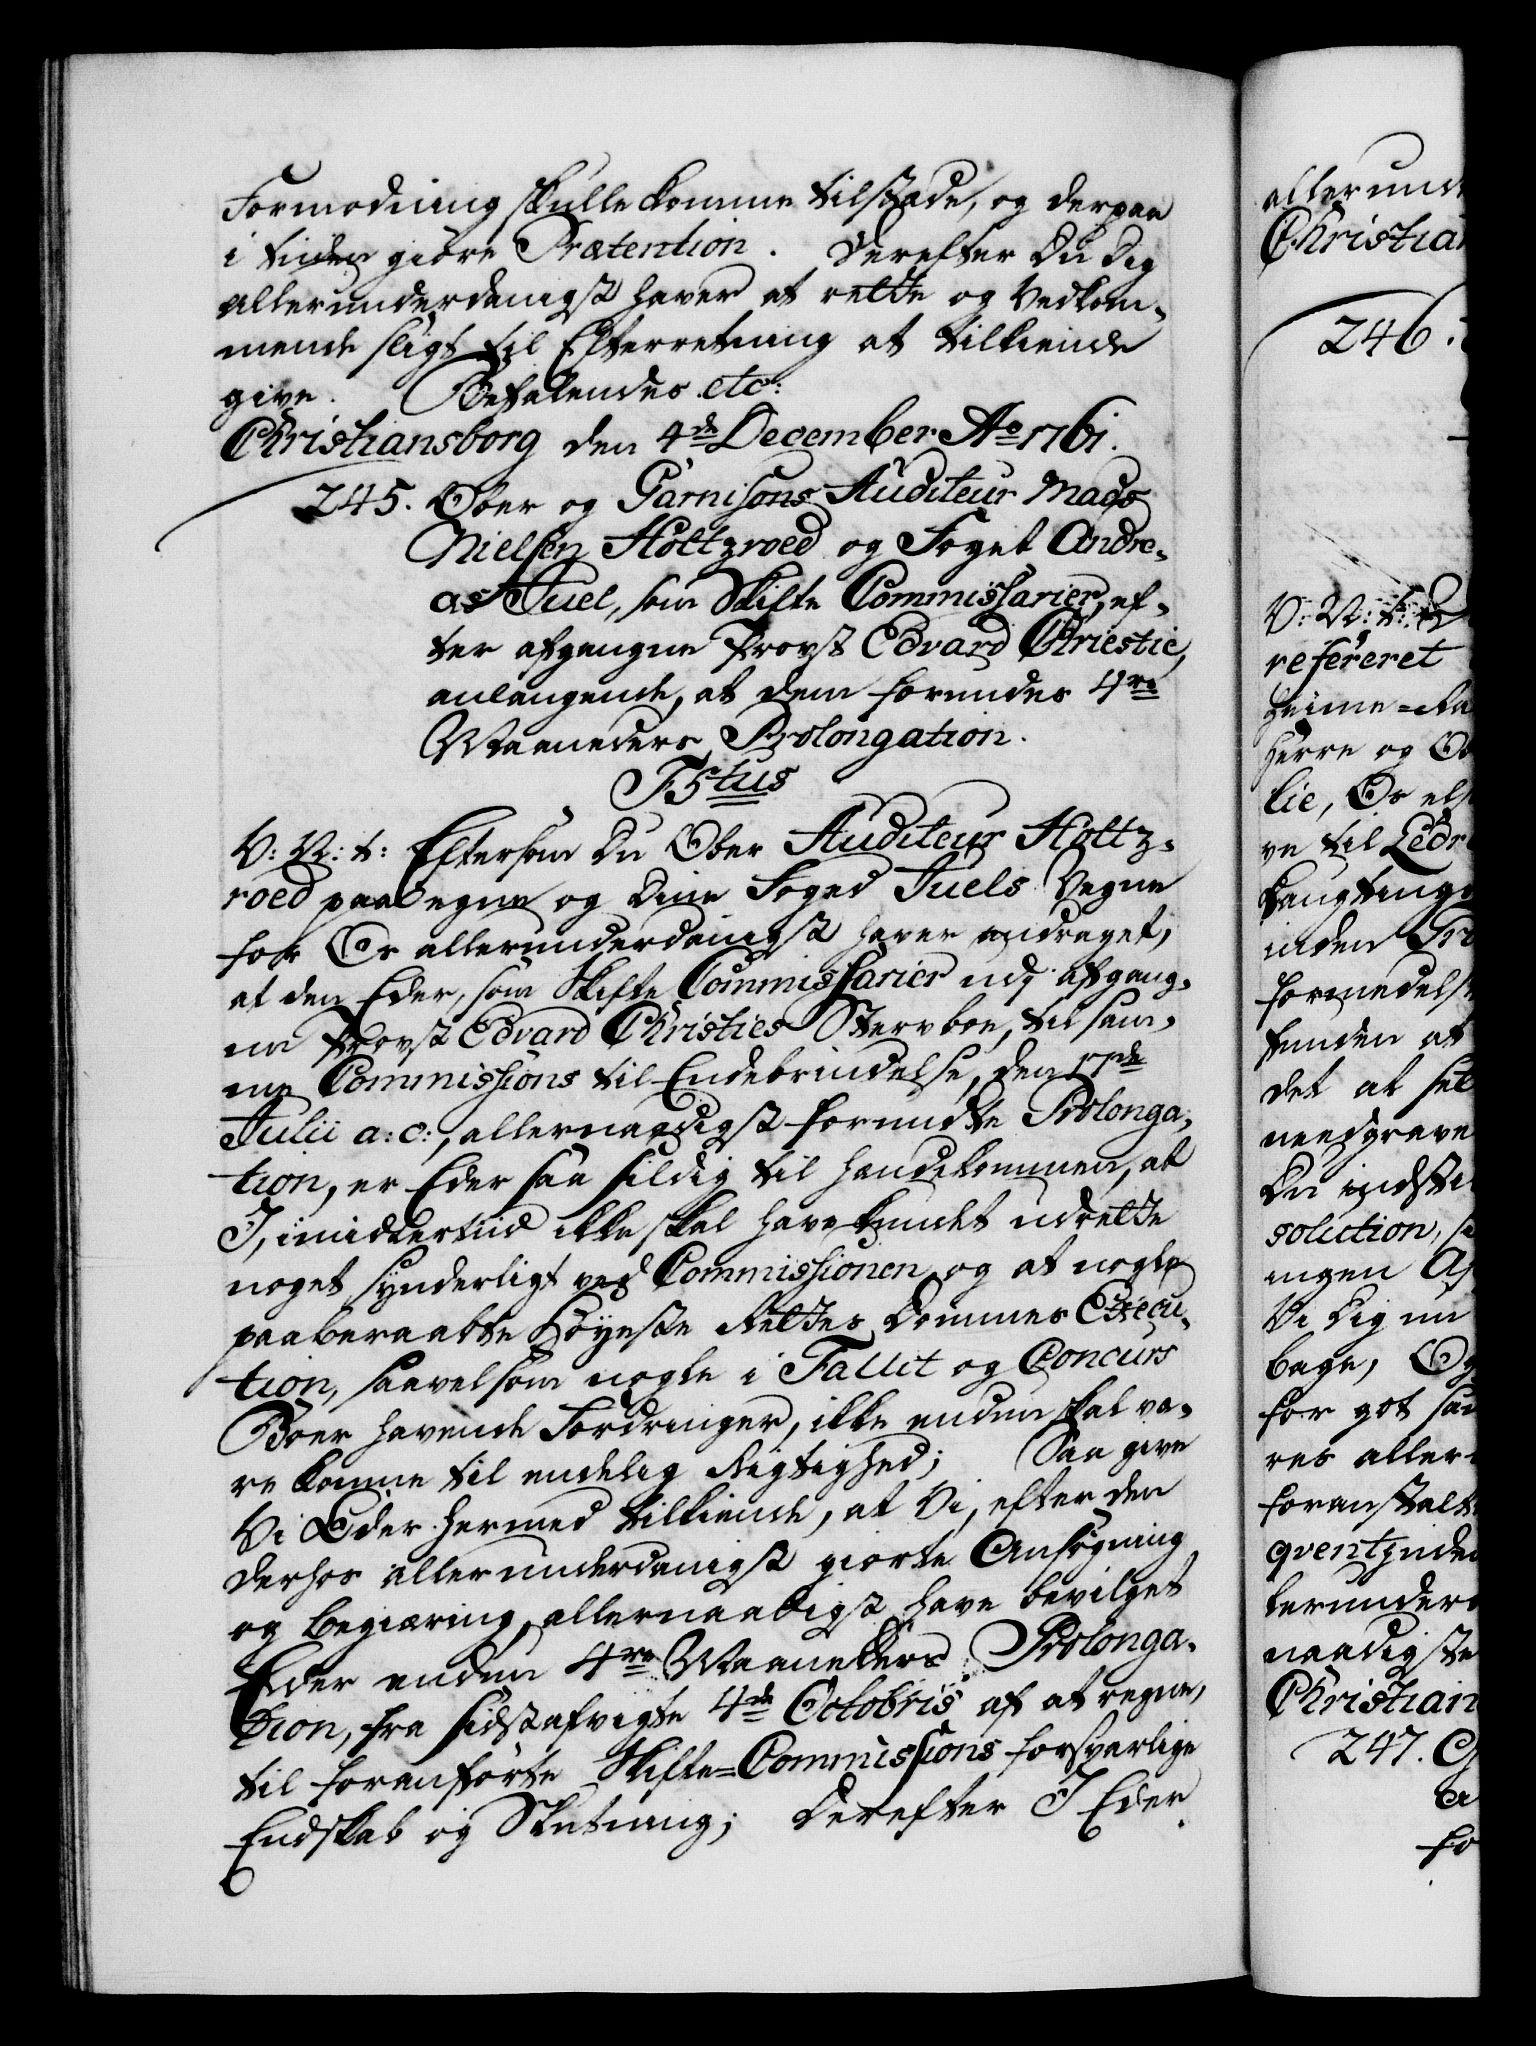 Formodning skulle komme tilstæde, og derpaa
i tiden giöre Prætention. Derefter Du Dig
allerunderdanigst haver at rette og Vedkom-
mende sligt til Efterretning at tilkiende
give. Befalendes etc:
Christiansborg den 4de December Ao 1761.
245. Ober og Garnisons Auditeur Mads
Nielsen Höltzroed og Foget Andre-
as Juel, som Skifte Commissarier, ef-
ter afgangne Provst Edvard Christie,
anlangende, at dem forundes 4re
Maaneders Prolongation.
F5tus
V: V: t: Eftersom Du Ober Auditeur Höltz-
roed paa egne og Dine Foged Juels Vegne
for Os allerunderdanigst haver andraget,
at den Eder, som Skifte Commissarier udj afgang-
ne Provst Edvard Christies Sterboe, til sam-
me Commissions til Endebrindelse, den
Julii a: c:, allernaadigst forundte Prolonga-
tion, er Eder saa sildig til Hænde kommen, at
I, imidlertiid ikke skal have kundet udrette
noget synderligt ved Commissionen, og at nogle
paaberaabte Höyeste Rettes Dommes Execu-
tion, saavelsom nogle i Fallit og Concurs
Boer havende Fordringer, ikke endnu skal væ-
re komne til endelig Rigtighed; Saa give
Vi Eder hermed tilkiende, at Vi, efter den
derhos allerunderdanigst giorte Ansögning
og Begiæring, allernaadigst have bevilget
Eder endnu 4re Maaneders Prolonga-
tion, fra sidstafvigte 4de Octobris af at regne,
til foranförte Skifte-Commissions forsvarlige
Endskab og Slutning; Derefter I Eder
allerund
Christian
246.
V: V: t:
refereret
Heime=Ra
Herre og O
lie, Os els
ve til Ledr
Laugtinge
inden Pro
formedelst
funden at
det at sel
neengrave
Du indstil
solution, s
ingen A
Vi Dig nu
bage, Og
for got sa
res aller
foranstalte
qventzinde
lerunder
naadigste
Christian
247.
a
fo